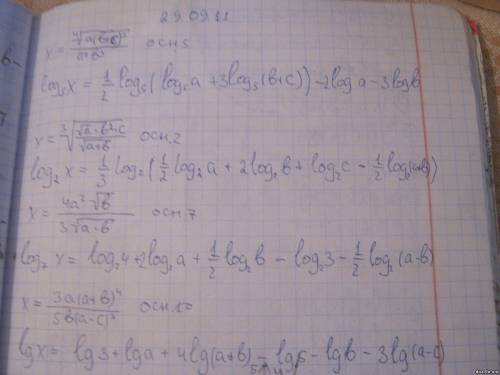 29.09.11
x = √a(b+c)³ / a²b³ осн 5
log₅x = 1/2 log₅(log₅a + 3log₅(b+c)) - 2log a - 3log b
x = ³√(√a·b²·c / √a+b) осн. 2
log₂ x = 1/3 log₂(1/2 log₂a + 2log₂b + log₂c - 1/2 log₂(a+b))
x = 4a²·√b / 3√a·b осн 7
log₇ x = log₂4 + 2log₂a + 1/2 log₂b - log₂3 - 1/2 log₂(a-b)
x = 3a(a+b)⁴ / 5b(a-c)³ осн 10
lgx = lg3 + lga + 4lg(a+b) - lg5 - lgb - 3lg(a-c)